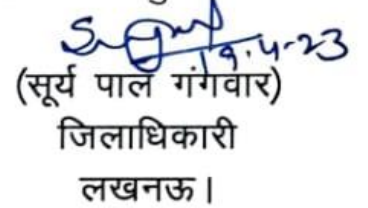 19.4.23
(सूर्य पाल गंगवार)
जिलाधिकारी
लखनऊ।